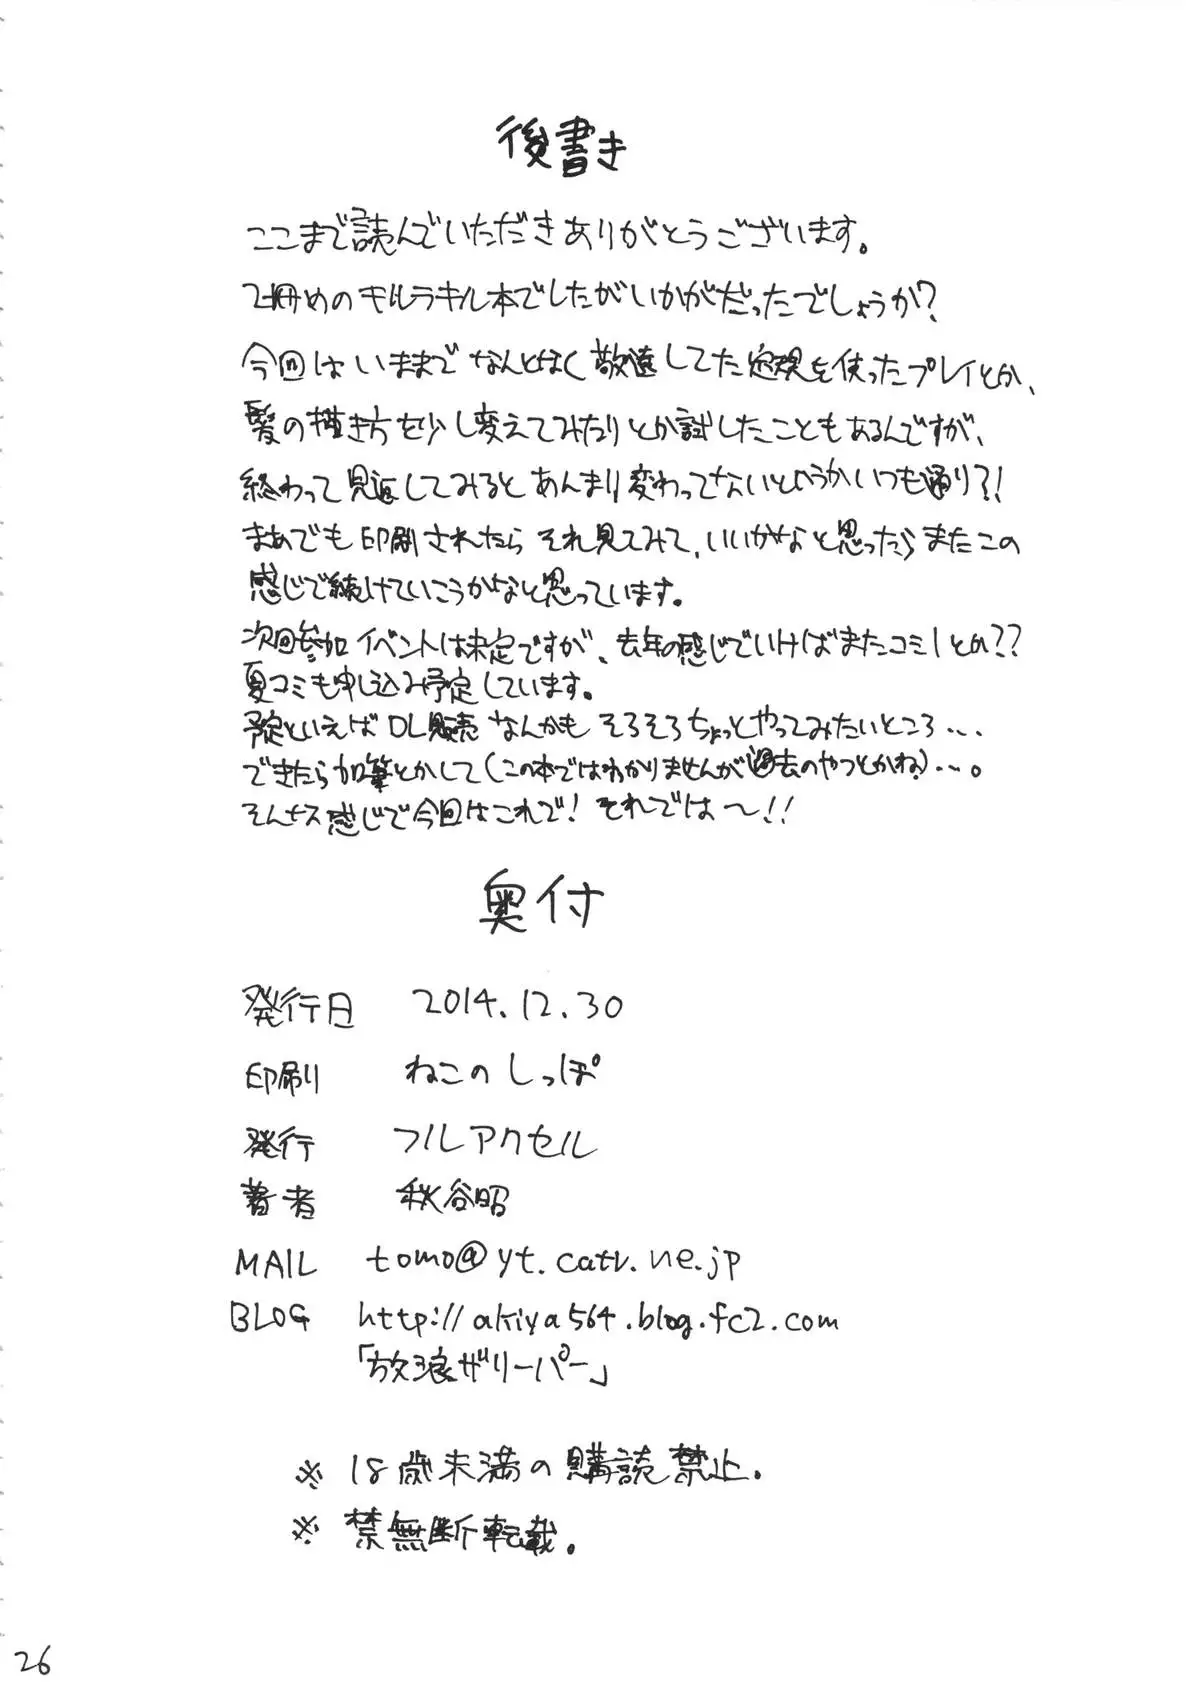 後書き
ここまで読んでいただきありがとうございます。
2冊めのキルラキル本でしたがいかがだったでしょうか?
今回はいままでなんとなく敬遠してた定規を使ったプレイとか、
髪の描き方を少し変えてみたりとか試したこともあるんですが、
終わって見返してみるとあんまり変わってないというかいつも通り?!
まあでも印刷されたらそれ見てみて、いいかなと思ったらまたこの
感じで続けていこうかなと思っています。
次回参加イベントは未定ですが、去年の感じでいけばまたコミ1とか??
夏コミも申し込み予定しています。
予定といえばDL販売なんかもそろそろちょっとやってみたいところ・・・
できたら加筆とかして(この本ではわかりませんが過去のやつとかね)・・・。
そんなス感じで今回はこれで!それでは〜!!
奥付
発行日 2014.12.30
印刷 ねこのしっぽ
発行 フルアクセル
著者 秋谷昭
MAIL tomo@yt.catv.ne.jp
BLOG http://akiya564.blog.fc2.com
「放浪ザリーパー」
※ 18歳未満の購読禁止。
※ 禁無断転載。
26